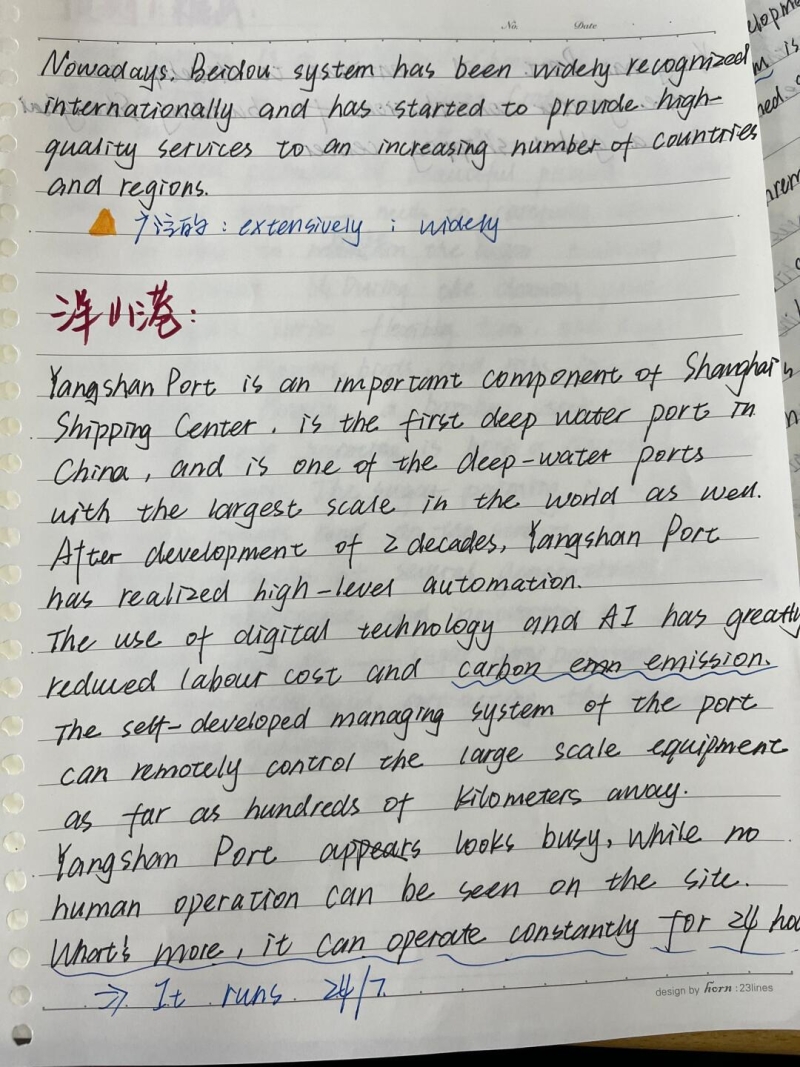 No. Date
Nowadays, Beidou system has been widely recognized
internationally and has started to provide high-
quality services to an increasing number of countries
and regions.
广泛的: extensively ; widely
洋山港:
Yangshan Port is an important component of Shanghai's
Shipping Center, is the first deep water port in
China, and is one of the deep-water ports
with the largest scale in the world as well.
After development of 2 decades, Yangshan Port
has realized high-level automation.
The use of digital technology and AI has greatly
reduced labour cost and carbon emission.
The self-developed managing system of the port
can remotely control the large scale equipment
as far as hundreds of kilometers away.
Yangshan Port appears looks busy, while no
human operation can be seen on the site.
What's more, it can operate constantly for 24 hou
⇒ It runs 24/7.
design by horn:23lines